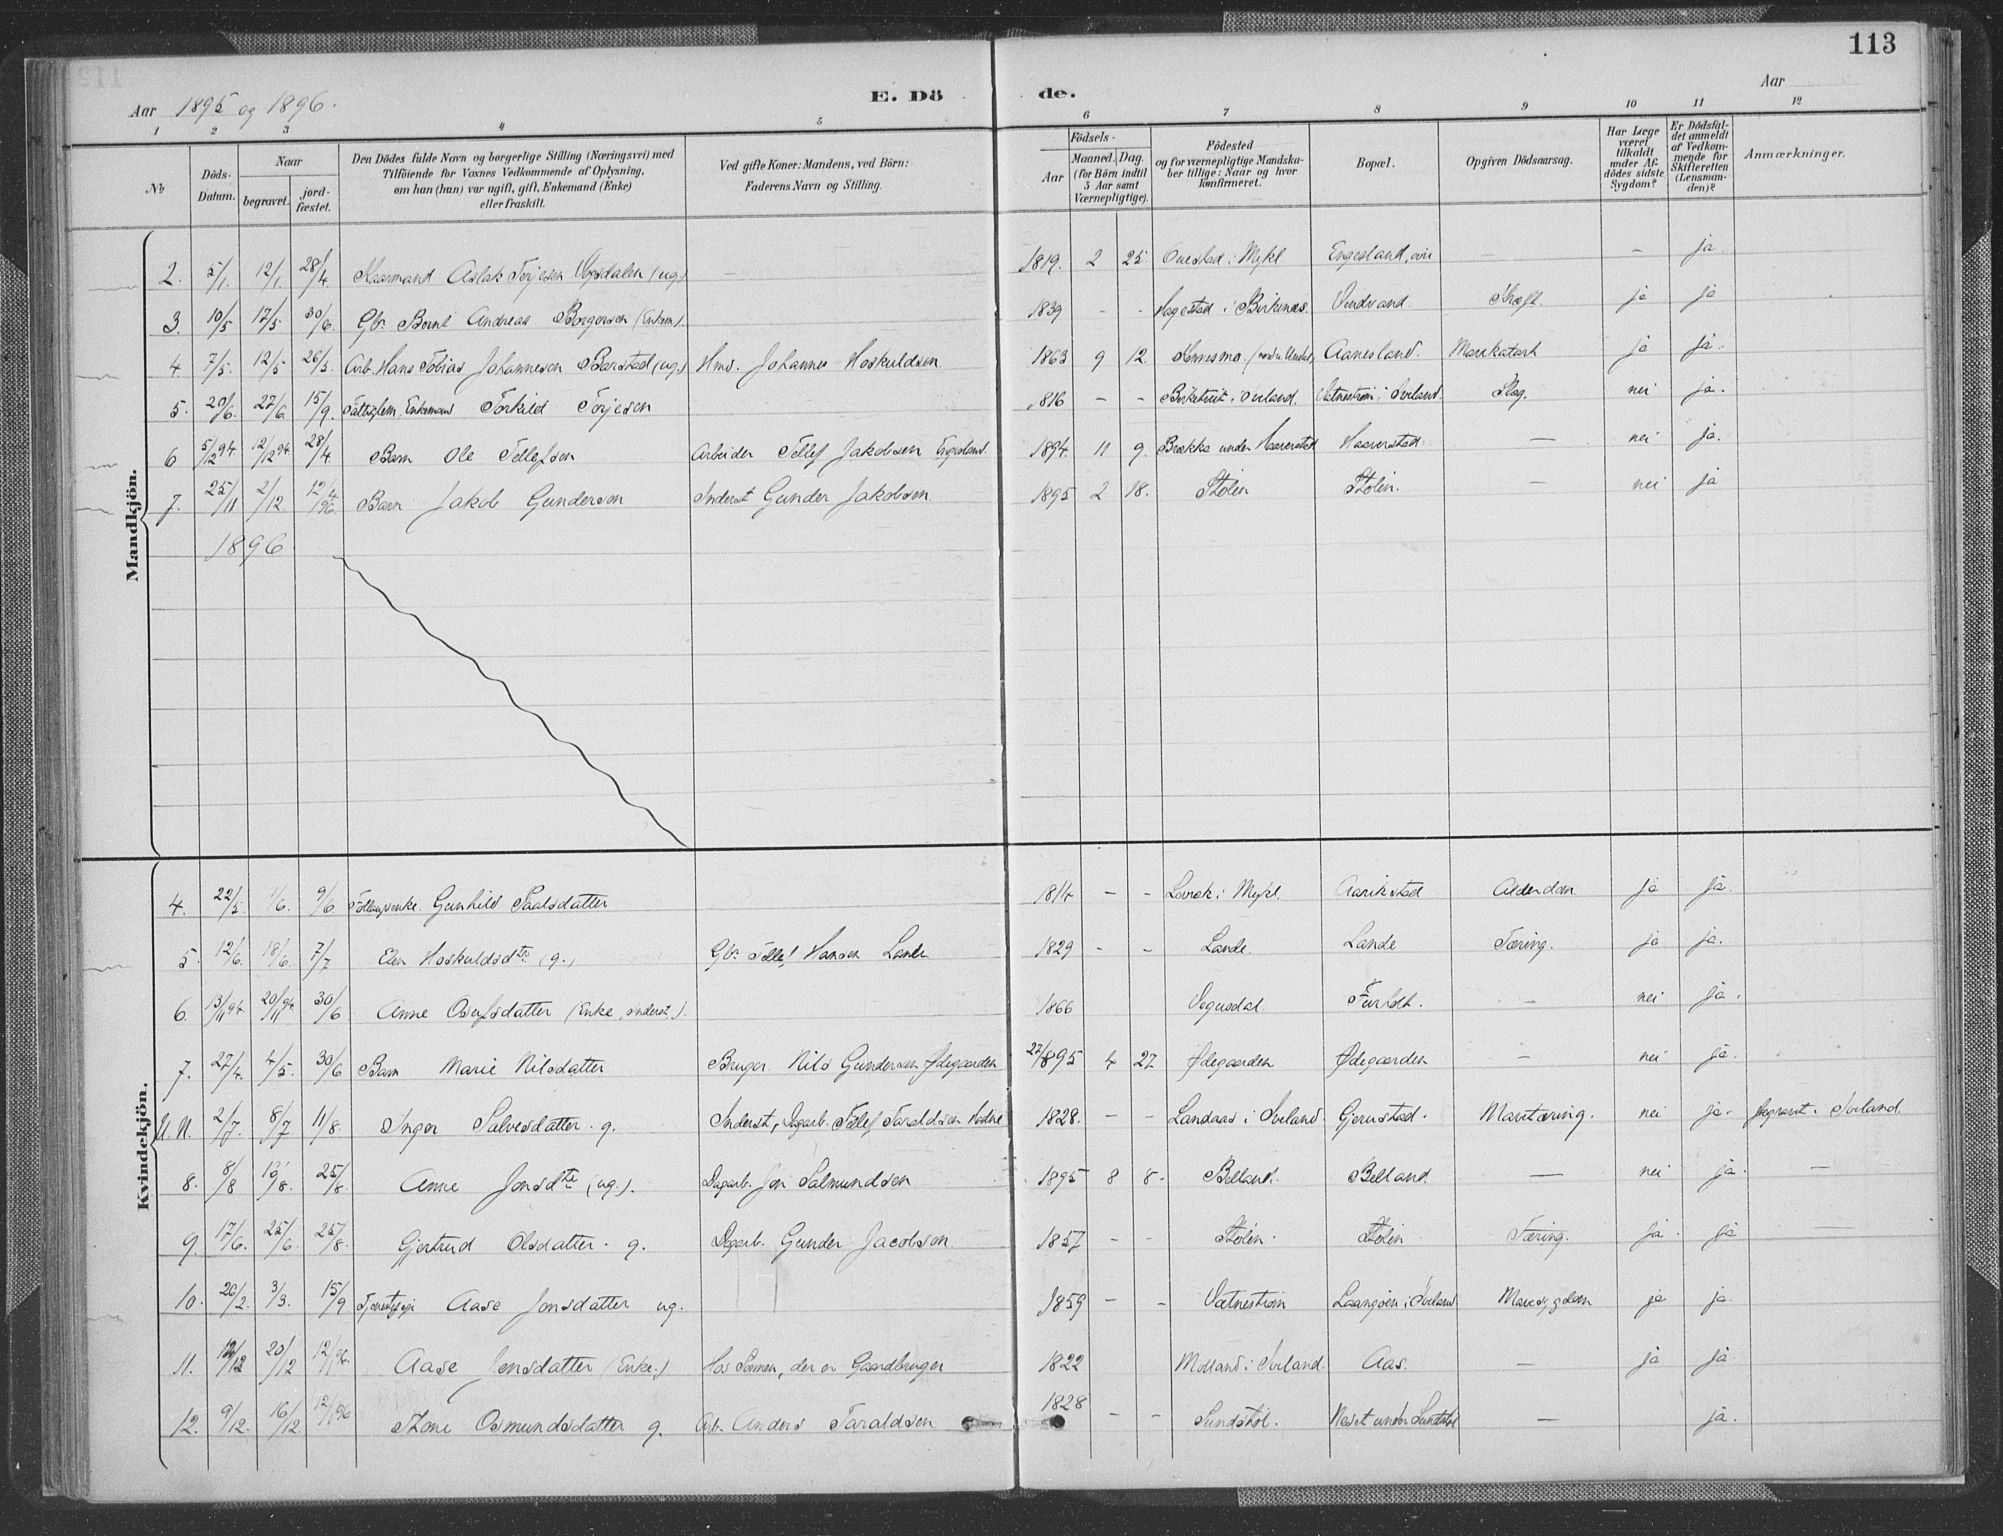 113
Aar 1895 og 1896.
E. Dö de.
Aar
1 2 3 4 5 6 7 8 9 10 11 12
No
Döds-Datum.
Naar
begravet.
jord-fæstet.
Den Dödes fulde Navn og borgerlige Stilling (Næringsvei) med
Tilföiende for Voxnes Vedkommende af Oplysning,
om han (hun) var ugift, gift, Enkemand (Enke)
eller fraskilt.
Ved gifte Koner: Mandens, ved Börn:
Faderens Navn og Stilling.
Födsels-
Aar
Maaned. Dag.
(for Börn indtil
5 Aar samt
Værnepligtige).
Födested
og for værnepligtige Mandska-
ber tillige: Naar og hvor
konfirmeret.
Bopæl.
Opgiven Dödsaarsag.
Har Læge
været
tilkaldt
under Af-
dödes sidste
Sygdom?
Er Dödsfal-
det anmeldt
af Vedkom-
mende for
Skifteretten
(Lensman-
den)?
Anmærkninger.
Mandkjön.
2. 5/1. 12/1. 28/4. Aslak Terjesen (ug.) 1819. 2 25 i Mykl. Engesland, — — ja.
3. 10/5 17/5 30/6. Gbr. Bernt Andreas Borgersen (Enkem.) 1839 - - Hagestad i Birkenæs. Vindvand. Kræft. ja ja
4. 7/5. 12/5 26/5. Arb. Hans Tobias Johannesen (ug.) Hmd. Johannes Hoskuldsen 1863 9 12. Aanesland. Mavekatarh ja ja.
5. 20/6. 27/6. 15/9. Enkemand Torkild Terjesen 1816 - - i Iveland. Vatnestrøm i Iveland. Slag. nei ja.
6 5/12 94. 12/12 94. 28/4. Barn Ole Tellefsen Arbeider Tellef Jakobsen Engesland. 1894. 11 9. Brække under Haaverstad Haaverstad. — nei ja.
7. 25/11 2/12 12/4 96. Barn Jakob Gundersen Inderst Gunder Jakobsen 1895 2 18. Stølen Stølen. — nei ja
1896
Kvindekjön.
4. 22/5. 1/6. 9/6. Gunhild Paalsdatter 1814 - - i Mykl. Aarikstad Alderdom ja ja.
5. 12/6. 18/6. 7/7 Elen Hoskuldsdtr. (g.) Gbr. Tellef Hansen Lande 1829 - - Lande. Lande Tæring. ja ja.
6. 13/11 94. 20/11 94 30/6 Anne Osufsdatter (Enke, inderst.) 1866 Vegusdal. — nei ja.
7. 27/4. 4/5. 30/6 Barn Marie Nilsdatter Bruger Nils Gundersen Ødegaarden 27/1895 4 27 Ødegaarden Ødegaarden — nei ja.
U.N. 2/7. 8/7 11/8. Inger Salvesdatter. g. Inderst, Dagarb. Tellef Taraldsen 1828. - - Landaas i Iveland. Gjerustad. Mavetæring. nei ja. Begravet i Iveland.
8. 8/8 16/8. 25/8. Anne Jonsdtr. (ug.). Dagarb. Jon Salmundsen 1895 8 8. Belland. Belland. — nei ja. —
9. 17/6. 25/6 25/8. Gjertrud Olsdatter. g. Dagarb. Gunder Jacobsen 1857 - - Stølen. Stølen Tæring. ja. ja —
10. 26/2. 3/3. 15/9 Tjenestepige Aase Jonsdatter ug. 1859 - - Vatnestrøm i Iveland Mavesygdom ja ja.
11. 12/12 20/12 12/1 96. Aase Jensdatter (Enke.) Hos Sønnen, der er Gaardbruger 1822 i Iveland. Aas. — ja ja.
12. 9/12. 16/12. 12/1 96 Tone Osmundsdatter g. Arb. Anders Taraldsen 1828 - - Sundstøl. Neset under Sundstøl — ja.